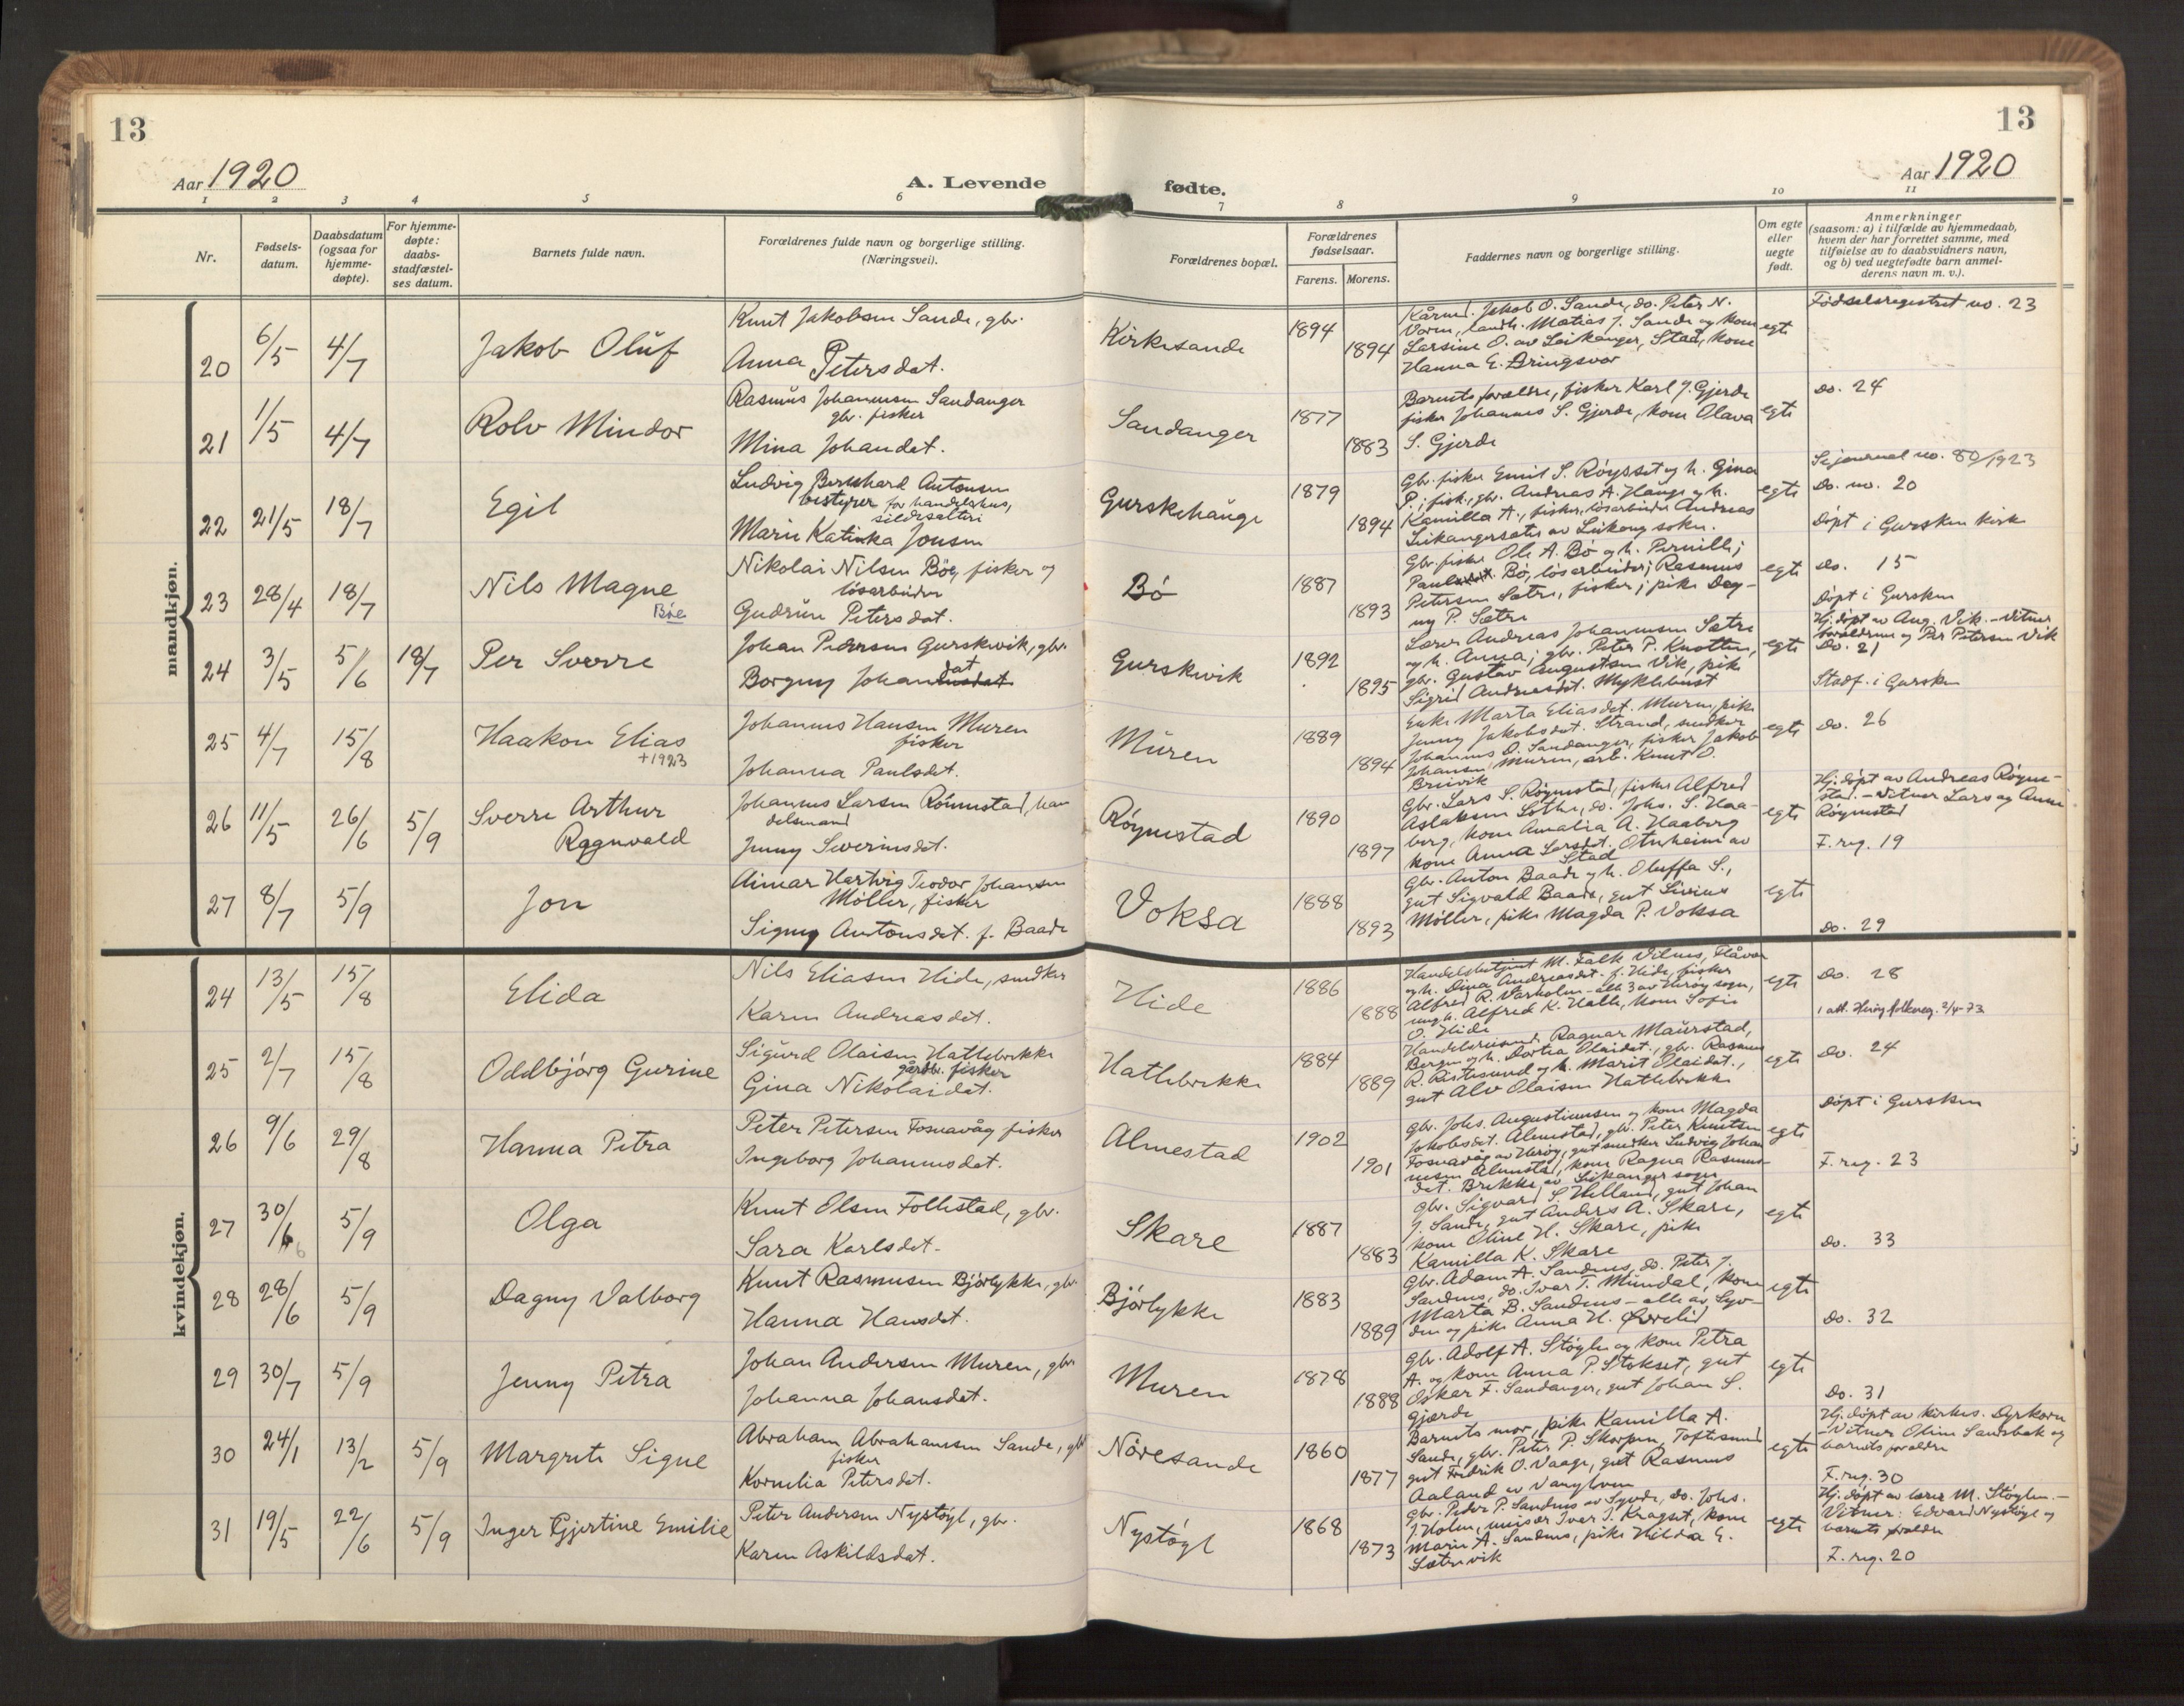 13
13
Aar 1920
A. Levende
fødte.
Aar 1920
1 2 3 4 5 6 7 8 9 10 11
Nr.
Fødsels-
datum.
Daabsdatum
(ogsaa for
hjemme-
døpte).
For hjemme-
døpte:
daabs-
stadfæstel-
ses datum.
Barnets fulde navn.
Forældrenes fulde navn og borgerlige stilling.
(Næringsvei).
Forældrenes bopæl.
Forældrenes
fødselsaar.
Farens. Morens.
Faddernes navn og borgerlige stilling.
Om egte
eller
uegte
født.
Anmerkninger
(saasom: a) i tilfælde av hjemmedaab,
hvem der har forrettet samme, med
tilføielse av to daabsvidners navn,
og b) ved uegtefødte barn anmel-
derens navn m. v.).
mandkjøn.
20 6/5 4/7 Jakob Oluf
Knut Jakobsen Sande, gbr.
Anna Petersdat.
Kirkesande 1894 1894
Kårmd. Jakob O. Sande, do. Peter N.
Voren, landh. Matias J. Sande og kone
Larsine O. av Leikanger, Stad, kone
Hanna E. Dringsvor
egte
Fødselsregistret no. 23
21 1/5 4/7 Rolv Mindor
Rasmus Johannessen Sandanger
gbr. fisker
Mina Johandat.
Sandanger 1877 1883
Barnets forældre, fisker Karl J. Gjerde
fisker Johannes S. Gjerde, kone Olava
S. Gjerde
egte
Do. 24
22 21/5 18/7 Egil
Ludvig Bernhard Antonsen
bestyrer for handelshus,
sildesalteri
Marie Katinka Jonsen
Gurskehauge 1879 1894
Gbr. fisker Emil S. Røyset og h. Gina
P.; fisk., gbr. Andreas A. Hauge og h.
Kamilla A., fisker, løsarbeider Andreas
Leikangersæter av Leikong sokn.
egte
Se journal no. 80/1923
Do. no. 20
Døpt i Gursken kirke
23 28/4 18/7 Nils Magne
Bøe
Nikolai Nilsen Bøe, fisker og
løsarbeider
Gudrun Petersdat.
Bø 1887 1893
Gbr. fisker Ole A. Bø og h. Pernille;
Paul Bø, løsarbeider; Rasmus
Petersen Sætre, fisker; pike Dag-
ny P. Sætre
egte
Do. 15
Døpt i Gursken
24 3/5 5/6 18/7 Per Sverre
Johan Pedersen Gurskevik, gbr.
Borgny Johandat
Gurskevik 1892 1895
Lærer Andreas Johannessen Sætre
og h. Anna; gbr. Peter P. Knotten,
gbr. Gustav Augustsen Vik, pike
Sigrid Andreasdat. Myklebust
egte
Hj. døpt av Aug. Vik. - Vitner
forældrene og Per Petersen Vik
Do. 21
Stadf. i Gursken
25 4/7 15/8 Haakon Elias
+1923
Johannes Hansen Muren
fisker
Johanna Paulsdat.
Muren 1889 1894
Enke Marta Eliasdat. Muren, pike
Jenny Jakobsdat. Strand, snedker
Johannes O. Sandanger, fisker Jakob
Johansen Muren, arb. Knut O.
Breivik
egte
Do. 26
26 11/5 26/6 5/9 Sverre Arthur
Ragnvald
Johannes Larsen Rønnestad, han
delsmand
Jenny Severinsdat.
Røynestad 1890 1897
Gbr. Lars S. Røynestad, fisker Alfred
Aslaksen Løthe, do. Johs. S. Haa-
berg, kone Amalia A. Haaberg
kone Anna Larsdat. Otnheim av
Stad
egte
Hj. døpt av Andreas Røyne-
stad. - Vitner Lars og Anne
Røynestad
F. reg. 19
27 8/7 5/9 Jon
Aimar Hartvig Teodor Johansen
Møller, fisker
Signy Antonsdat. f. Baade
Voksa 1888 1893
Gbr. Anton Baade og h. Oluffa S.,
gut Sigvald Baade, gut Sirius
Møller, pike Magda P. Voksa
egte
Do. 29
kvindekjøn.
24 13/5 15/8 Elida
Nils Eliasen Hide, snedker
Karen Andreasdat.
Hide 1886 1888
Handelsbetjent M. Falk Vilnes, Flåvær
og h. Dina Andreasdat. f. Hide, fisker
Alfred R. Varholm - alle 3 av Herøy sogn,
ungk. Alfred K. Hatle, kone Sofie
O. Hide
egte
Do. 28
1 att. Herøy folkereg. 2/4-73
25 2/7 15/8 Oddbjørg Gurine
Sigurd Olaisen Hatlebrekke
gårdbr. fisker
Gina Nikolaidat.
Hatlebrekke 1884 1889
Handelsreisende Ragnar Maurstad,
Bergen og h. Dortea Olaidat., gbr. Rasmus
R. Ristesund og h. Marit Olaidat.,
gut Alv Olaisen Hatlebrekke
egte
Do. 24
26 9/6 29/8 Hanna Petra
Peter Petersen Fosnavåg fisker
Ingeborg Johannesdat.
Almestad 1902 1901
Gbr. Johs. Augustinussen og kone Magda
Jakobsdat. Almestad, gbr. Peter Knutsen
Fosnavåg av Herøy, gut snedker Ludvig Johan
nesen Almestad, kone Ragna Rasmus-
dat. Brekke av Leikanger sogn
egte
Døpt i Gursken
F. reg. 23
27 30/6 6 5/9 Olga
Knut Olsen Follestad, gbr.
Sara Karlsdat.
Skare 1887 1883
Gbr. Sigvard S. Helland, gut Johan
J. Sande, gut Anders A. Skare,
kone Oline H. Skare, pike
Kamilla K. Skare
egte
Do. 33
28 28/6 5/9 Dagny Valborg
Knut Rasmusen Bjørlykke, gbr.
Hanna Hansdat.
Bjørlykke 1883 1889
Gbr. Adam A. Sandnes, do. Peter J.
Sandnes, do. Ivar T. Mundal, kone
Marta B. Sandnes - alle av Syv-
den og pike Anna H. Ørvelid
egte
Do. 32
29 30/7 5/9 Jenny Petra
Johan Andersen Muren, gbr.
Johanna Johansdat.
Muren 1878 1888
Gbr. Adolf A. Støylen og kone Petra
A. og kone Anna P. Stokset, gut
Oskar F. Sandanger, gut Johan S.
Gjærde
egte
Do. 31
30 24/1 13/2 5/9 Margrete Signe
Abraham Abrahamsen Sande, gbr
fisker
Kornelia Petersdat.
Nøresande 1860 1877
Barnets mor, pike Kamilla A.
Sande, gbr. Peter P. Skorpen, Toftesund
gut Fredrik O. Vaage, gut Rasmus
Aaland av Vanylven
egte
Hj. døpt av kirkes. Dyrkorn
- Vitner Oline Sandsbak og
barnets forældre
F. reg. 30
31 19/5 22/6 5/9 Inger Gjertine Emilie
Peter Andersen Nystøyl, gbr.
Karen Askildsdat.
Nystøyl 1868 1873
Gbr. Peder P. Sandnes av Syvde, do. Johs.
J. Holen, Iver I. Kragset, kone
Marie A. Sandnes, pike Hilda E.
Sætrevik
egte
Hj. døpt av lærer M. Støylen. -
Vitner: Edvard Nystøyl og
barnets forældre
F. reg. 20